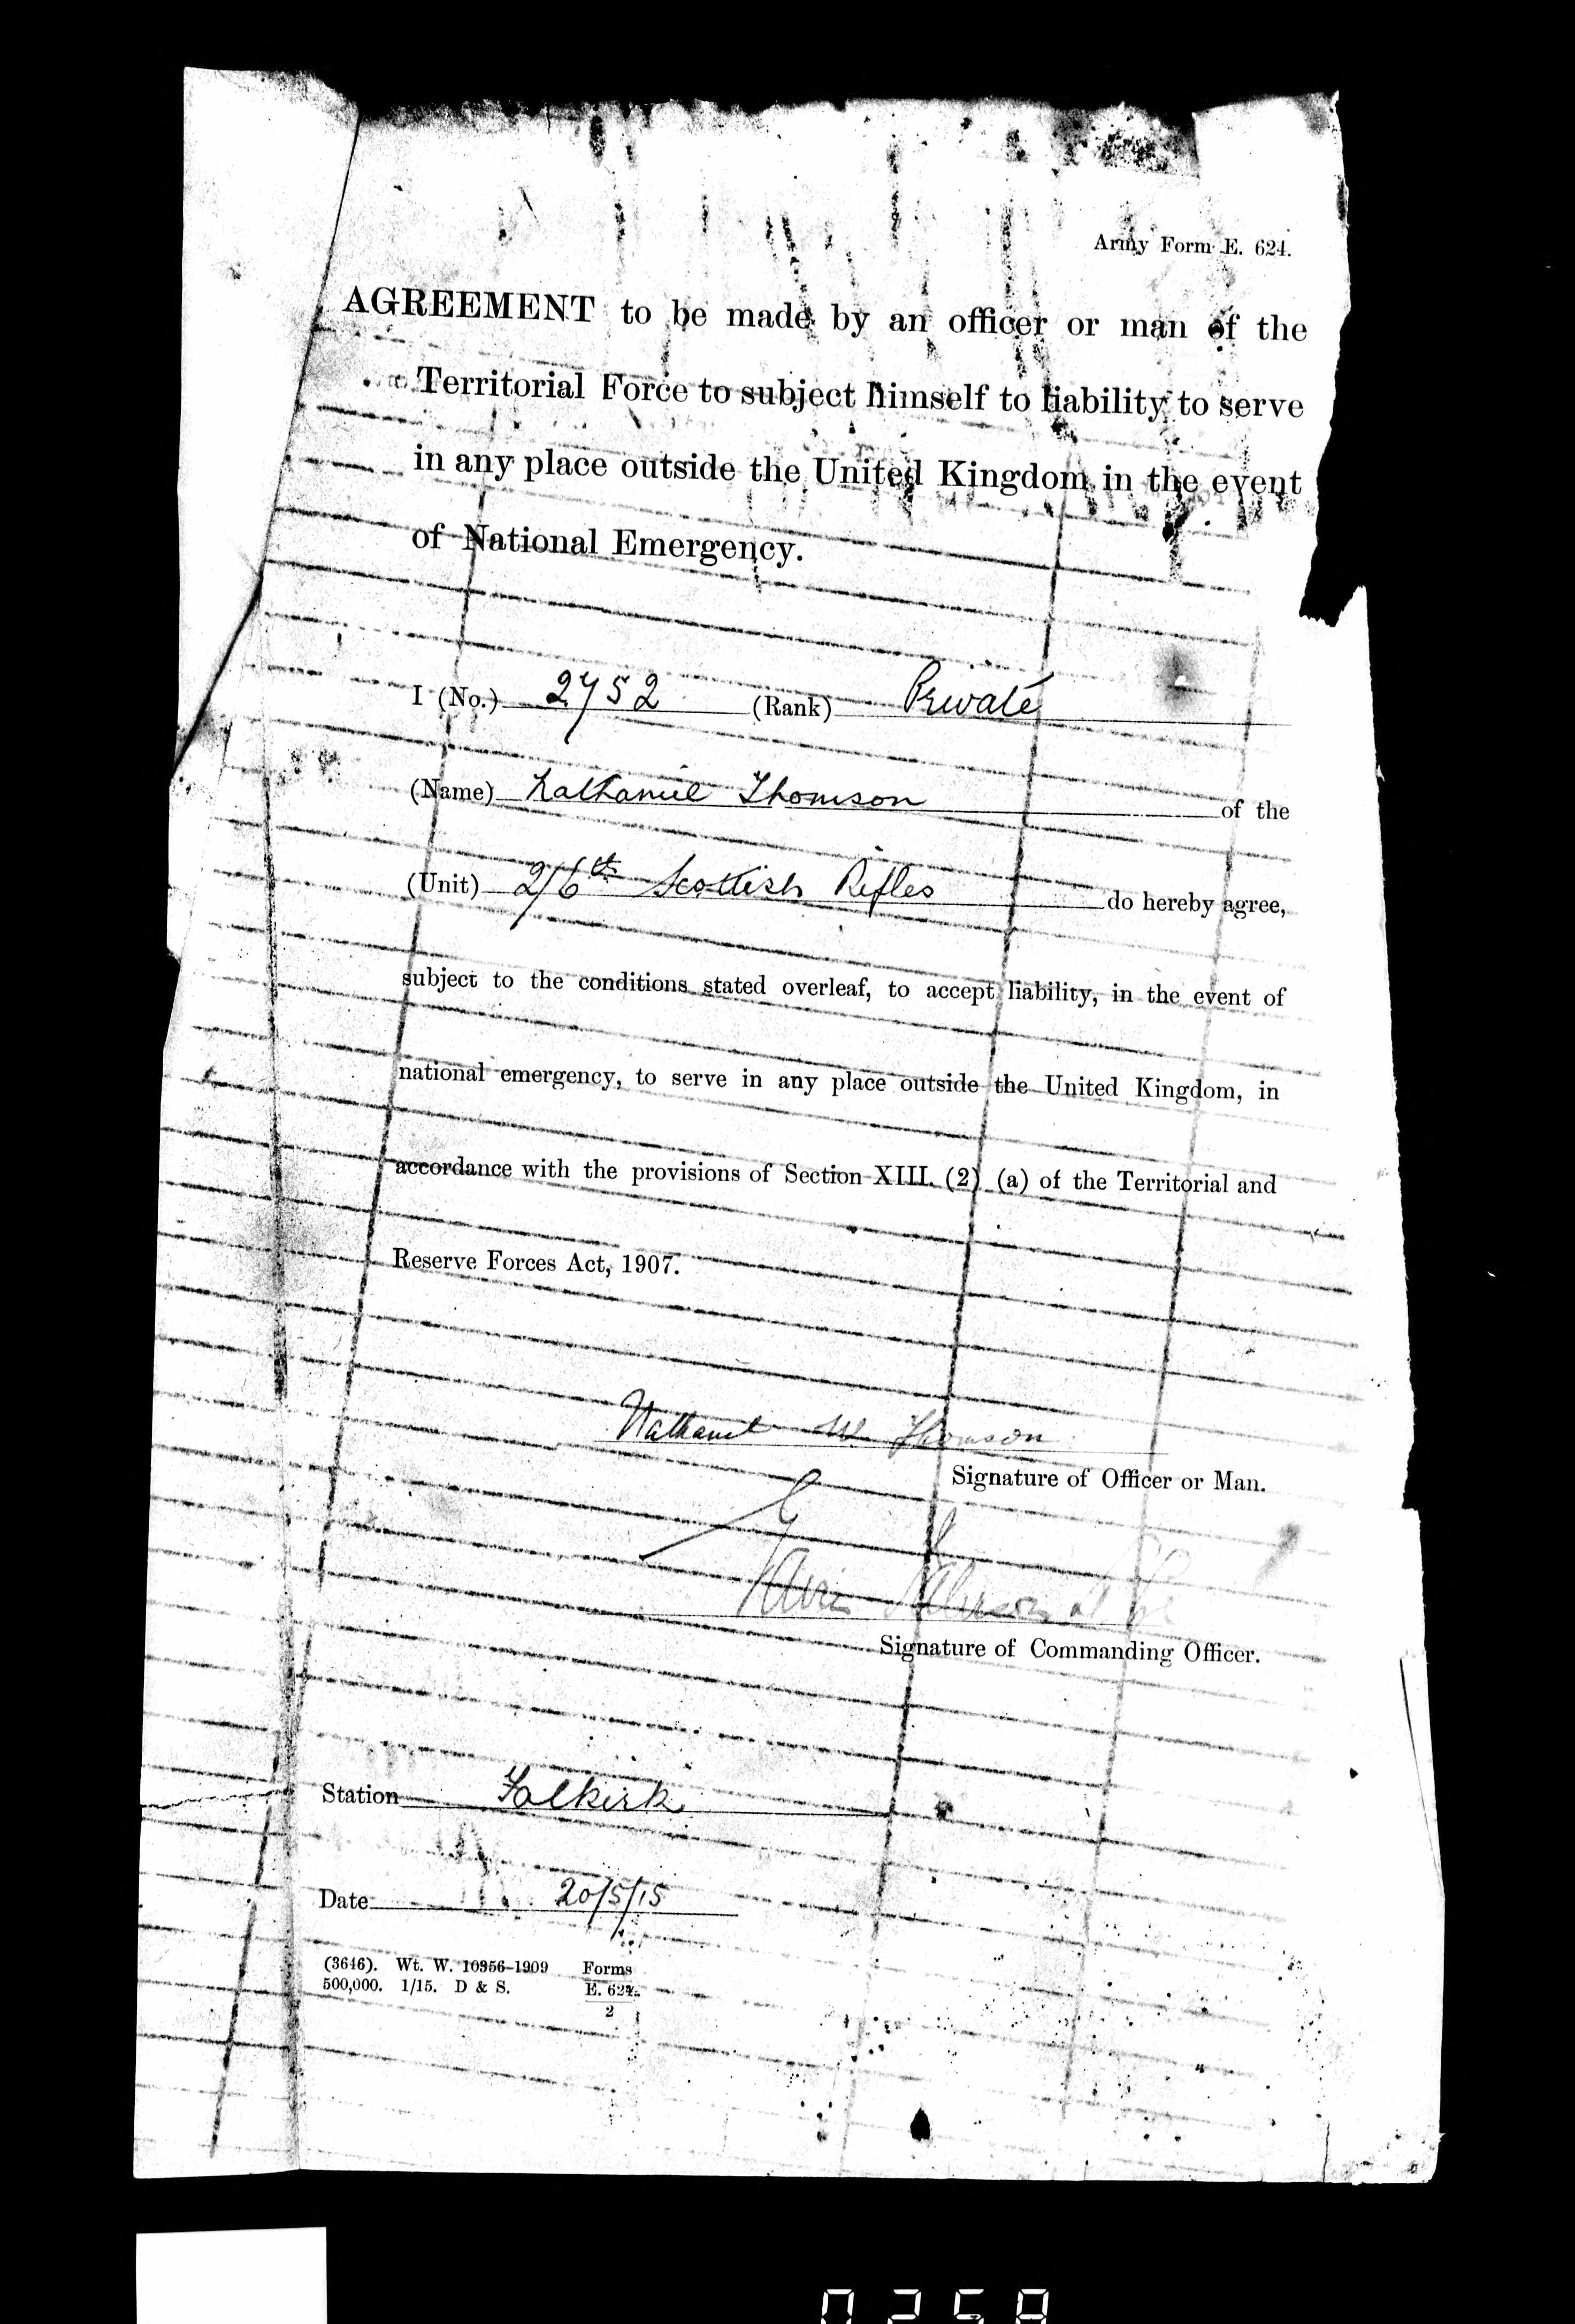 Army Form E. 624.
AGREEMENT to be made by an officer or man of the
Territorial Force to subject himself to liability to serve
in any place outside the United Kingdom in the event
of National Emergency.
I (No.) 2752 (Rank) Private
(Name) Nathaniel Thomson of the
(Unit) 2/6th Scottish Rifles do hereby agree,
subject to the conditions stated overleaf, to accept liability, in the event of
national emergency, to serve in any place outside the United Kingdom, in
accordance with the provisions of Section XIII. (2) (a) of the Territorial and
Reserve Forces Act, 1907.
Nathaniel W. Thomson
Signature of Officer or Man.
Signature of Commanding Officer.
Station Falkirk
Date 20/5/15
(3646). Wt. W. 10356-1909 Forms
500,000. 1/15. D & S. E. 624.
2
0258